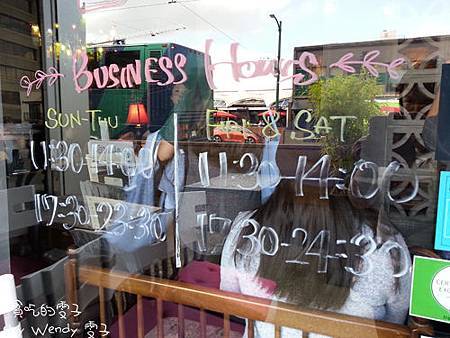 Business Hours
SUN-THU
11:30-14:00
17:30-23:30
FRI & SAT
11:30-14:00
17:30-24:30
貪吃的雯子
By Wendy 雯子